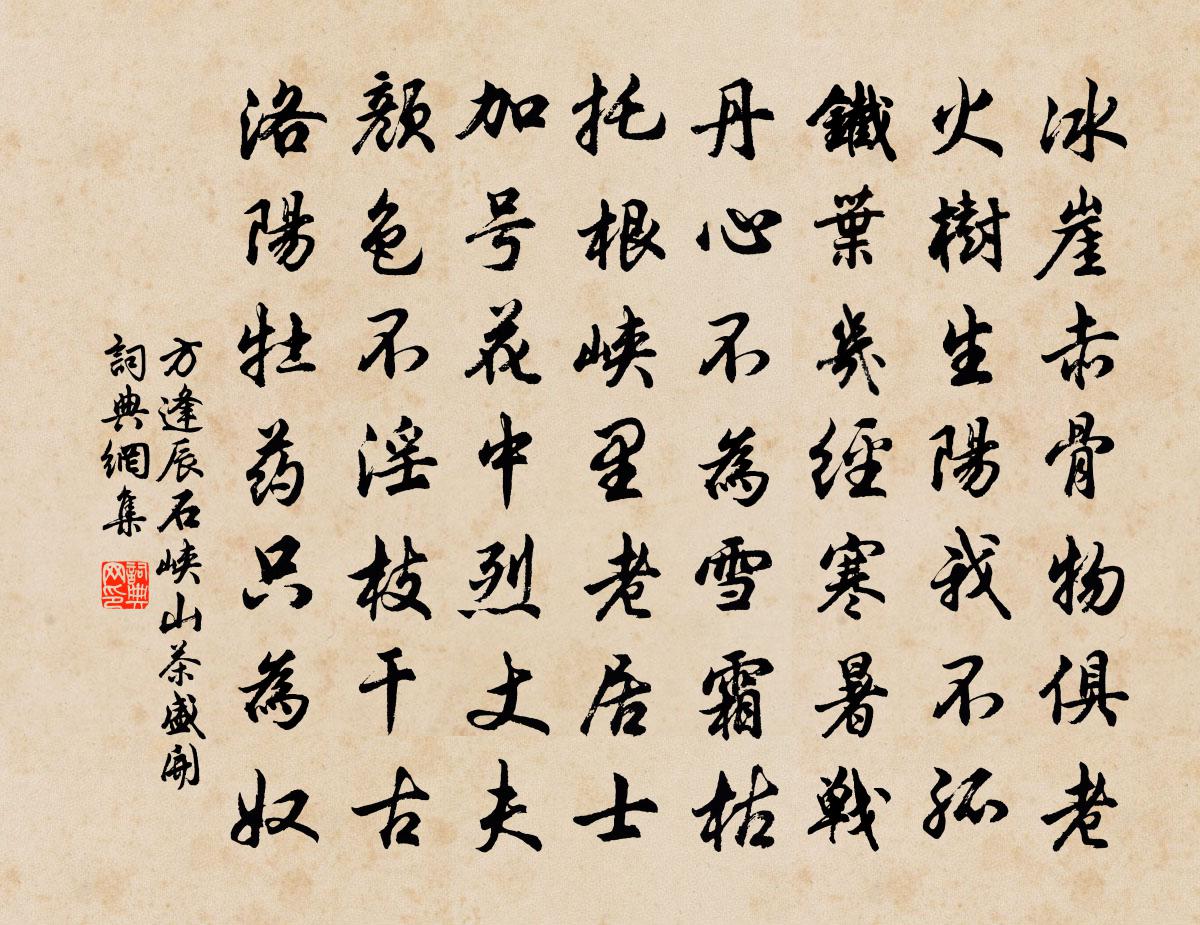 冰崖赤骨物俱老
火樹生陽我不孤
鐵葉幾經寒暑戰
丹心不為雪霜枯
托根峡里老居士
加号花中烈丈夫
顏色不淫枝干古
洛陽牡药只為奴
方逢辰石峡山茶盛開
詞典網集
詞典网印